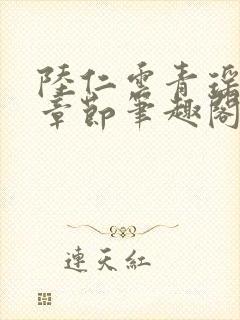 陸仁雲青瑶
章節筆趣閣
連天紅